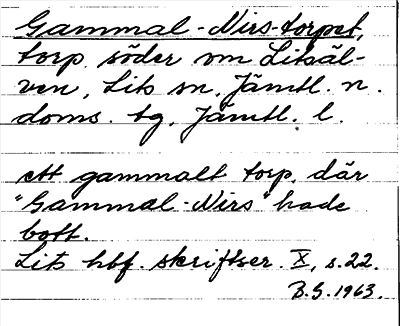 Gammal-Nirs-torpet,
torp söder om Litsäl-
ven, Lits sn, Jämtl. n.
doms. tg, Jämtl. l.
ett gammalt torp, där
"Gammal-Nirs" hade
bott.
Lits hbf. skriftser. X, s. 22.
B.S. 1963.